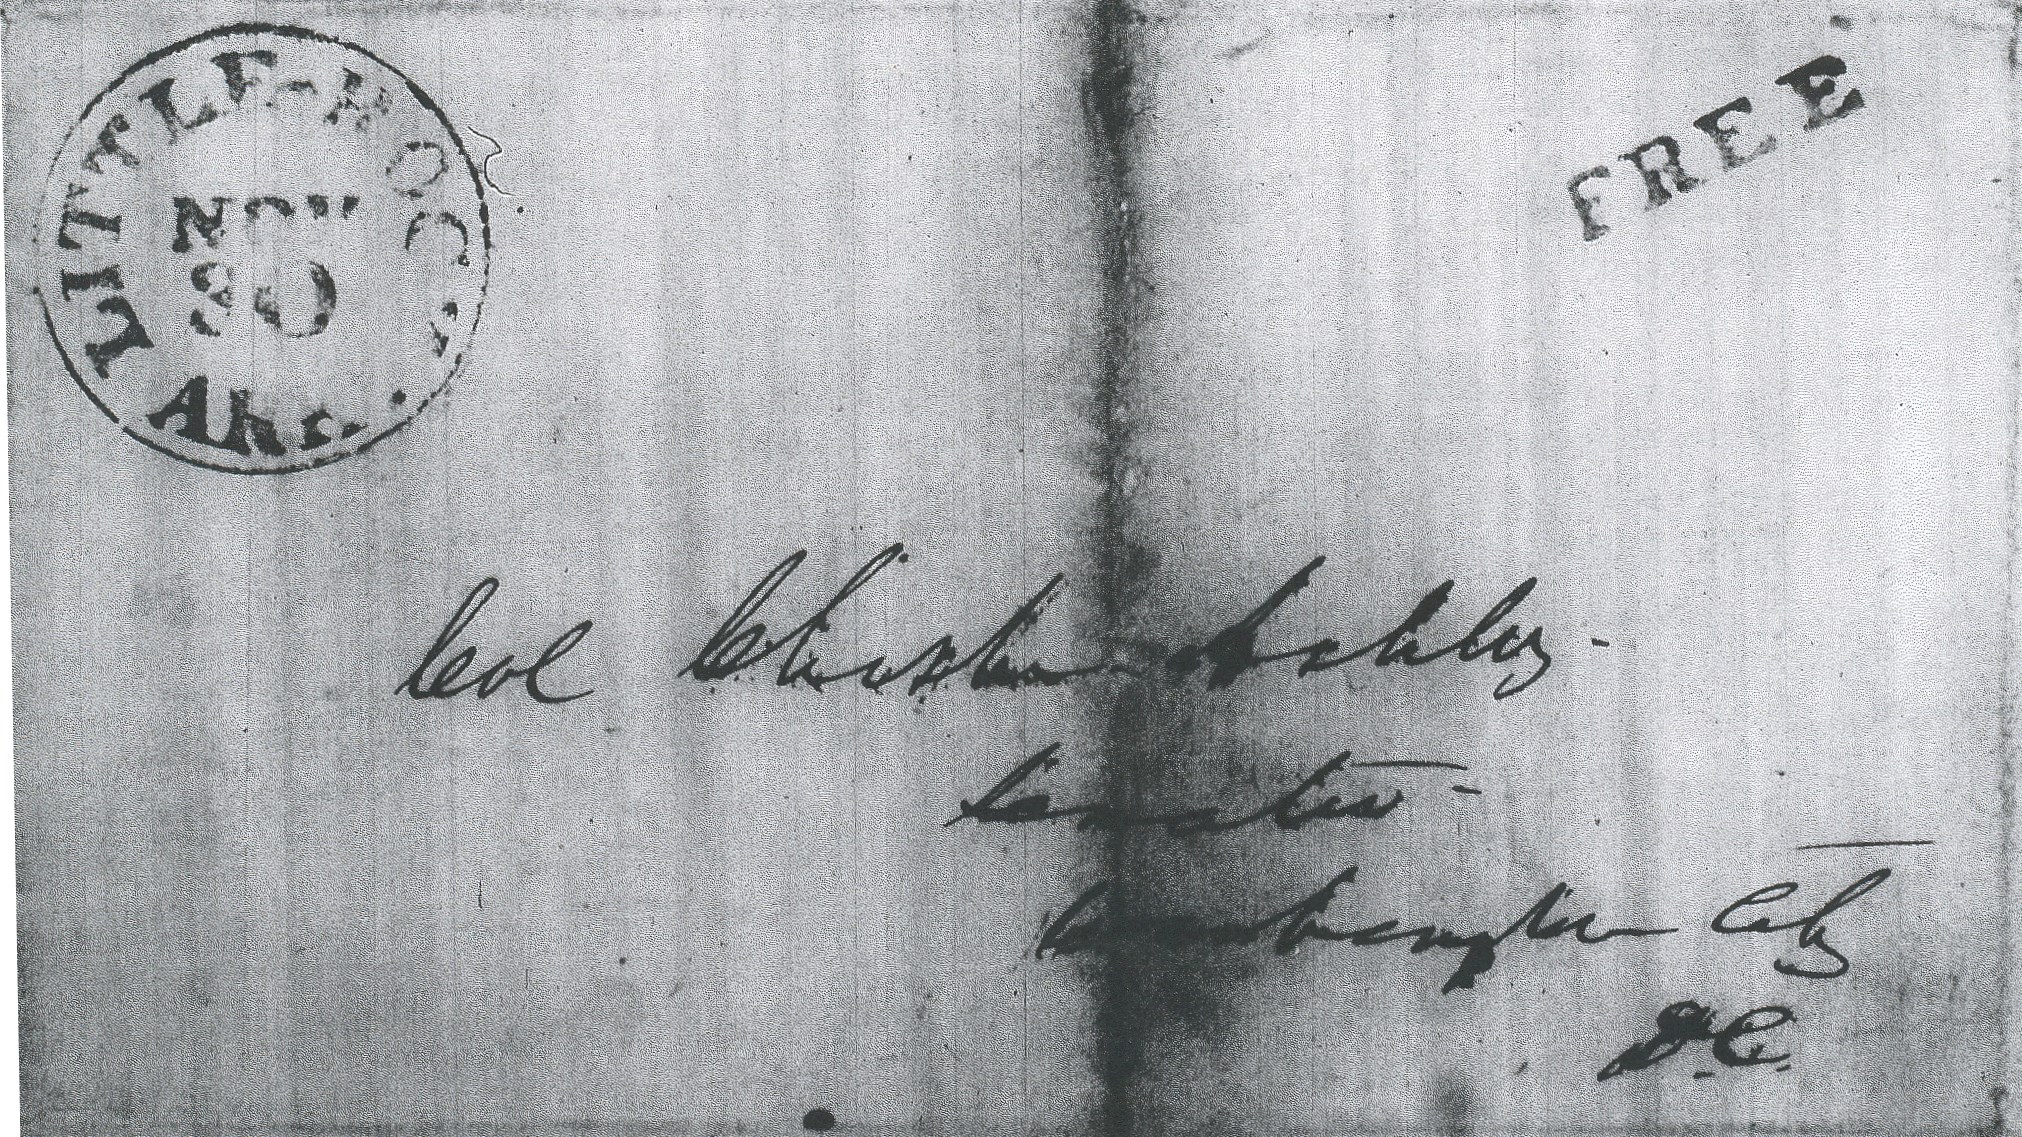 LITTLE-ROCK
NOV
30
Ark.
FREE
Col Chester Ashley -
Senator -
Washington City
D.C.